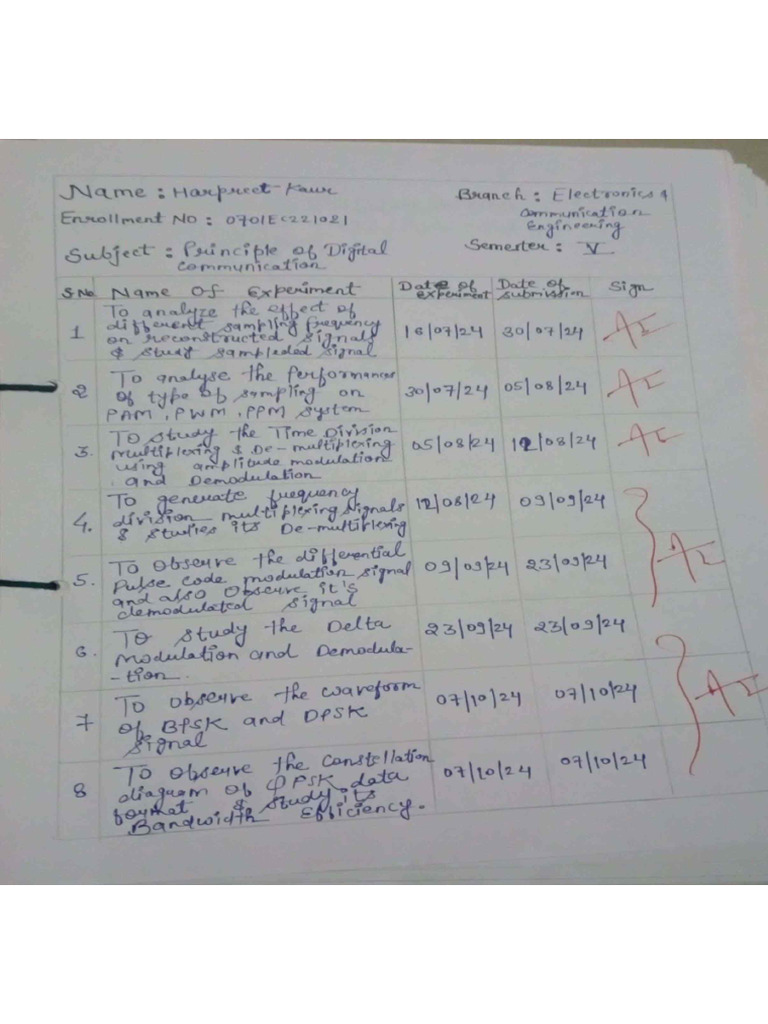 Name : Harpreet Kaur Branch : Electronics &
Communication
Engineering
Enrollment NO : 0701EC221021
Subject : Principle of Digital Semester : V
Communication
S No Name Of Experiment Date of experiment Date of submission Sign
1 To analyze the effect of
different sampling frequency
on reconstructed signals 16/07/24 30/07/24
& study sampleded signal
2 To analyse the Performances
Of type of sampling on 30/07/24 05/08/24
PAM, PWM, PPM system
3. To study the Time Division
Multiplexing & De-multiplexing 05/08/24 12/08/24
using amplitude modulation
and Demodulation
4. To generate frequency 12/08/24 09/09/24
division multiplexing signals
& studies its De-multiplexing
5. To Observe the differential
Pulse code modulation signal 09/09/24 23/09/24
and also Observe it's
demodulated signal
6. To study the Delta 23/09/24 23/09/24
Modulation and Demodula-
-tion.
7 To observe the waveform 07/10/24 07/10/24
of BPSK and DPSK
signal
8 To Observe the Constellation 07/10/24 07/10/24
diagram of QPSK data
format & study its
Bandwidth Efficiency.